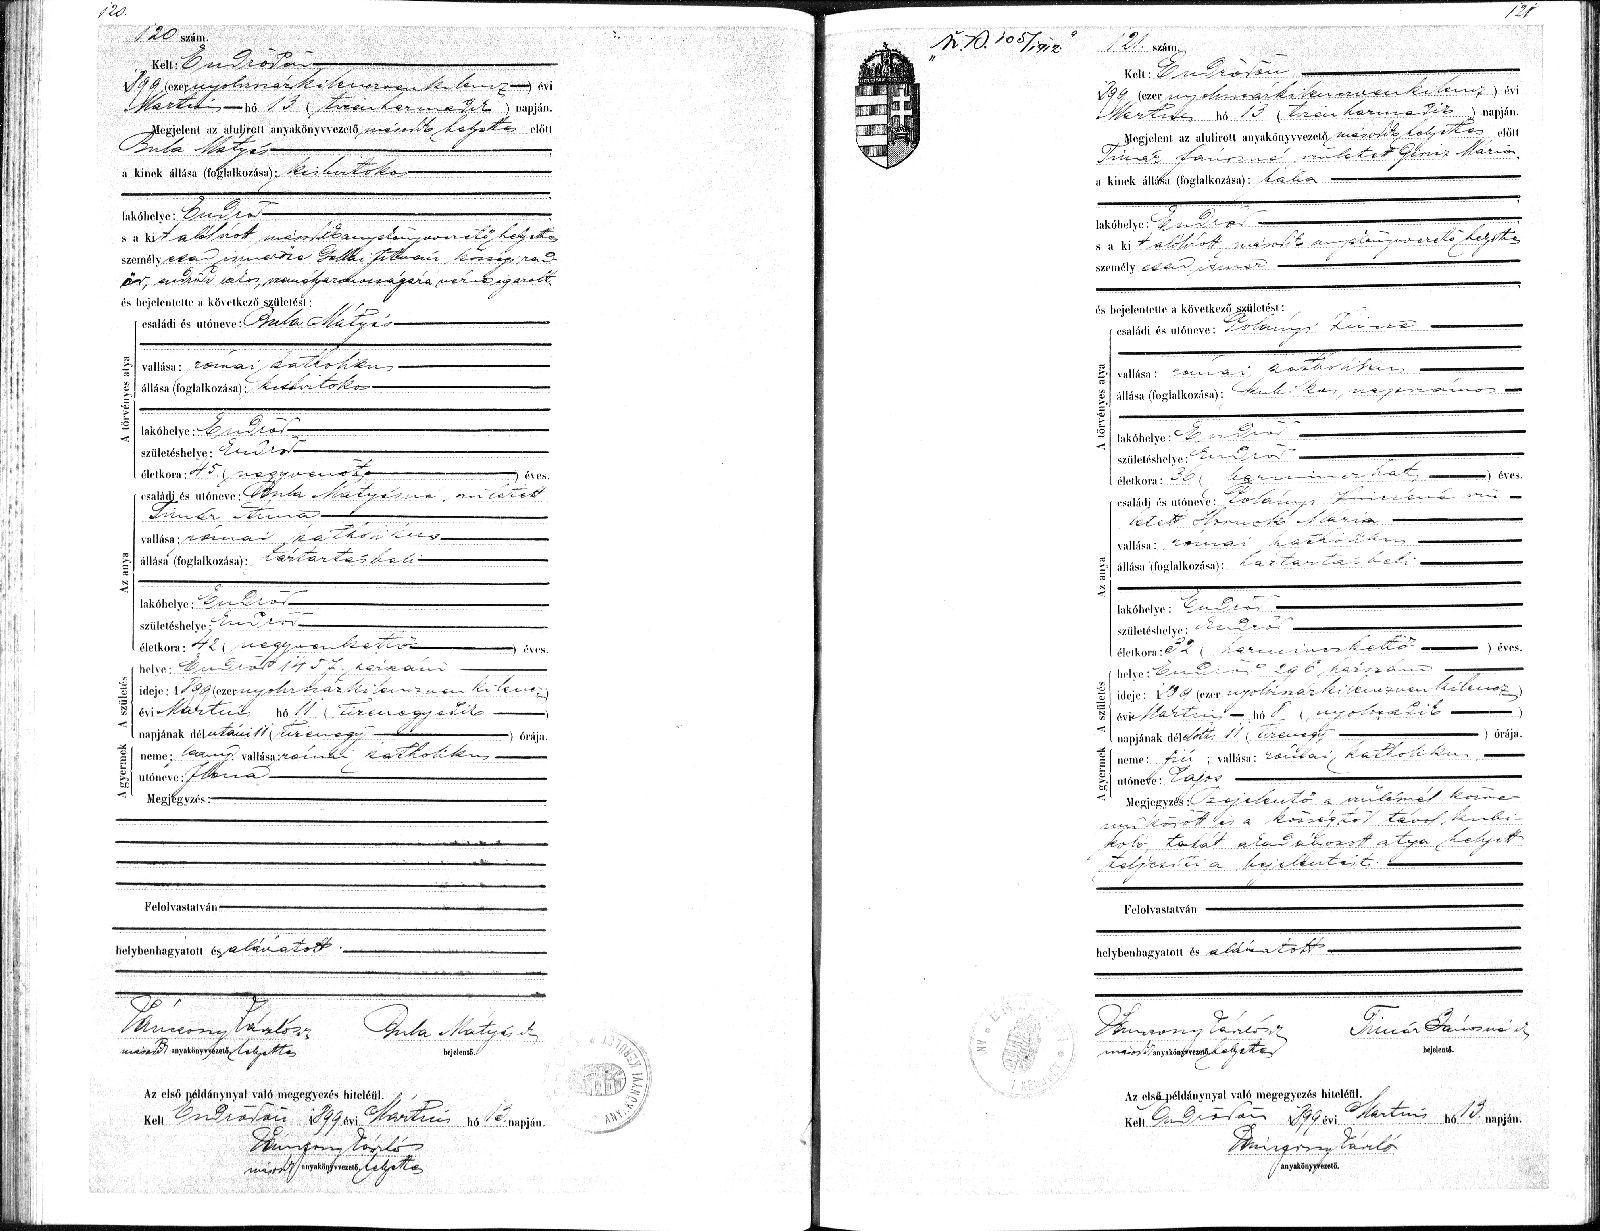 120.
120 szám.
Kelt: Endrődön
1899 (ezer nyolczszázkilenczvenkilencz) évi
Martius hó 13 (tizenharmadik) napján.
Megjelent az alulirott anyakönyvvezető másodh. helyettes előtt
Bula Mátyás
a kinek állása (foglalkozása): kisbirtokos
lakóhelye: Endrőd
s a kit alulírott másodh. anyakönyvvezető helyettes
személy
és bejelentette a következő születést:
A törvényes atya
családi és utóneve: Bula Mátyás
vallása: római katholikus
állása (foglalkozása): kisbirtokos
lakóhelye: Endrőd
születéshelye: Endrőd
életkora: 45 (negyvenöt) éves.
Az anya
családi és utóneve: Bula Mátyásné, született
Timár Anna
vallása: római katholikus
állása (foglalkozása): háztartásbeli
lakóhelye: Endrőd
születéshelye: Endrőd
életkora: 42 (negyvenkettő) éves.
A születés
helye: Endrőd 1457 házszám
ideje: 1899 (ezer nyolczszázkilenczvenkilencz)
évi Martius hó 11 (tizenegyedik)
napjának délutáni 11 (tizenegy) órája.
A gyermek
neme: leány vallása: római katholikus
utóneve: Ilona
Megjegyzés:
Felolvastatván
helybenhagyatott és aláiratott.
Bula Mátyás
másodh. anyakönyvvezető helyettes
bejelentő.
Az első példánynyal való megegyezés hiteléül.
Kelt Endrődön 1899 évi Mártius hó 13 napján.
másodh. anyakönyvvezető helyettes
121
121. szám.
Kelt: Endrődön
1899 (ezer nyolczszázkilenczvenkilencz) évi
Martius hó 13 (tizenharmadik) napján.
Megjelent az alulirott anyakönyvvezető másodh. helyettes előtt
Timár Jánosné született Mária
a kinek állása (foglalkozása): bába
lakóhelye: Endrőd
s a kit alulírott másodh. anyakönyvvezető helyettes
személyesen ismer
és bejelentette a következő születést:
A törvényes atya
családi és utóneve:
vallása: római katholikus
állása (foglalkozása): kubikos, napszámos
lakóhelye: Endrőd
születéshelye: Endrőd
életkora: 36 (harminczhat) éves.
Az anya
családi és utóneve: szü-
letett Hornok Mária
vallása: római katholikus
állása (foglalkozása): háztartásbeli
lakóhelye: Endrőd
születéshelye: Endrőd
életkora: 32 (harminczkettő) éves.
A születés
helye: Endrőd 296 házszám
ideje: 1899 (ezer nyolczszázkilenczvenkilencz)
évi Martius hó 8 (nyolczadik)
napjának délelőtti 11 (tizenegy) órája.
A gyermek
neme: fiú; vallása: római katholikus
utóneve: Lajos
Megjegyzés: Bejelentő a szülésnél közre-
működött és a községtől távol, kubi-
atya helyett
teljesíti a bejelentést.
Felolvastatván
helybenhagyatott és aláiratott
Timár Jánosné
másodh. anyakönyvvezető helyettes
bejelentő.
Az első példánynyal való megegyezés hiteléül.
Kelt Endrődön 1899 évi Martius hó 13. napján.
anyakönyvvezető.